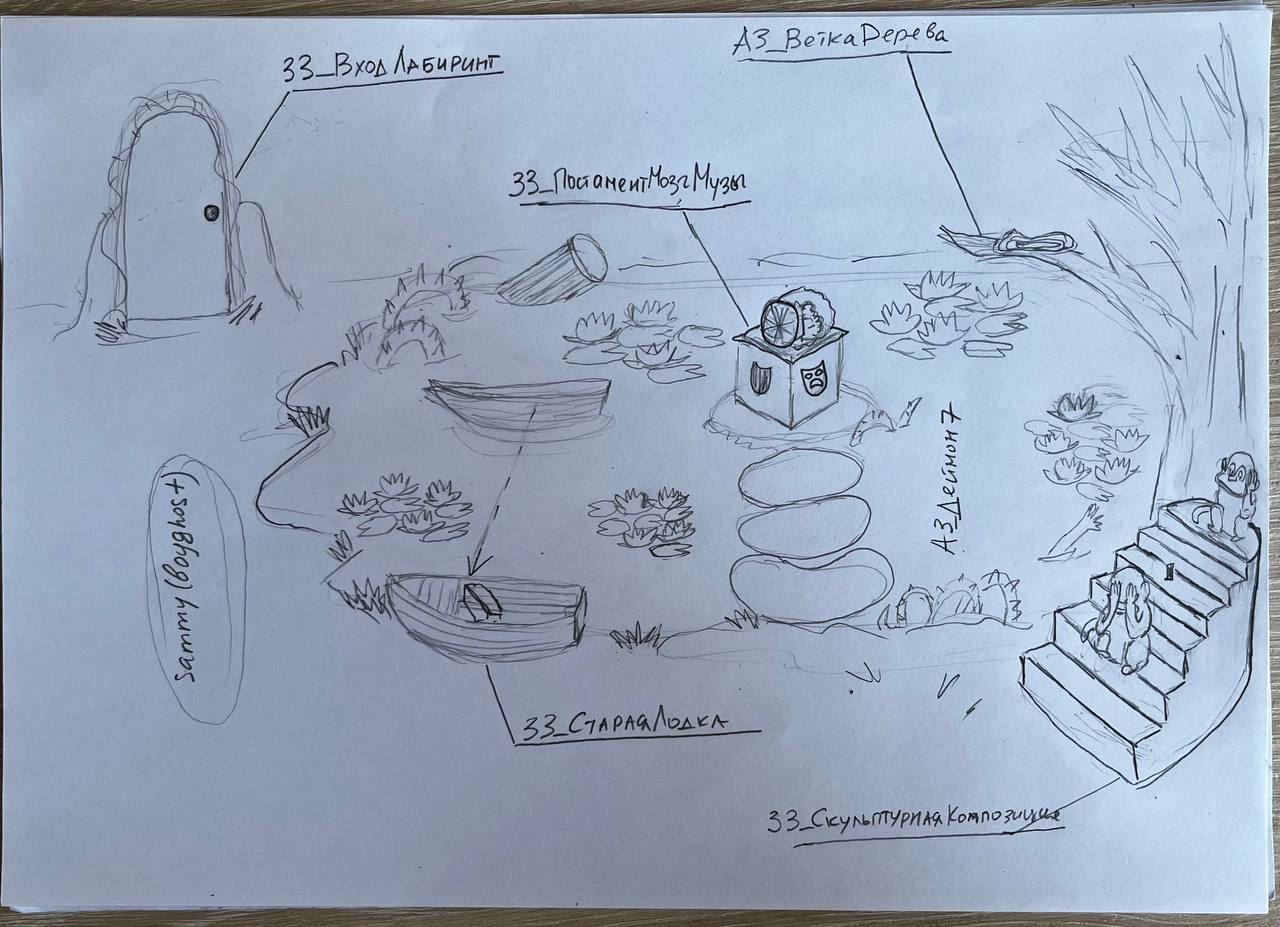 ЗЗ_ВходЛабиринт
АЗ_ВеткаДерева
ЗЗ_ПостаментМозгМузы
АЗ_Деймон7
Sammy(boyghost)
ЗЗ_СтараяЛодка
ЗЗ_СкульптурнаяКомпозиция